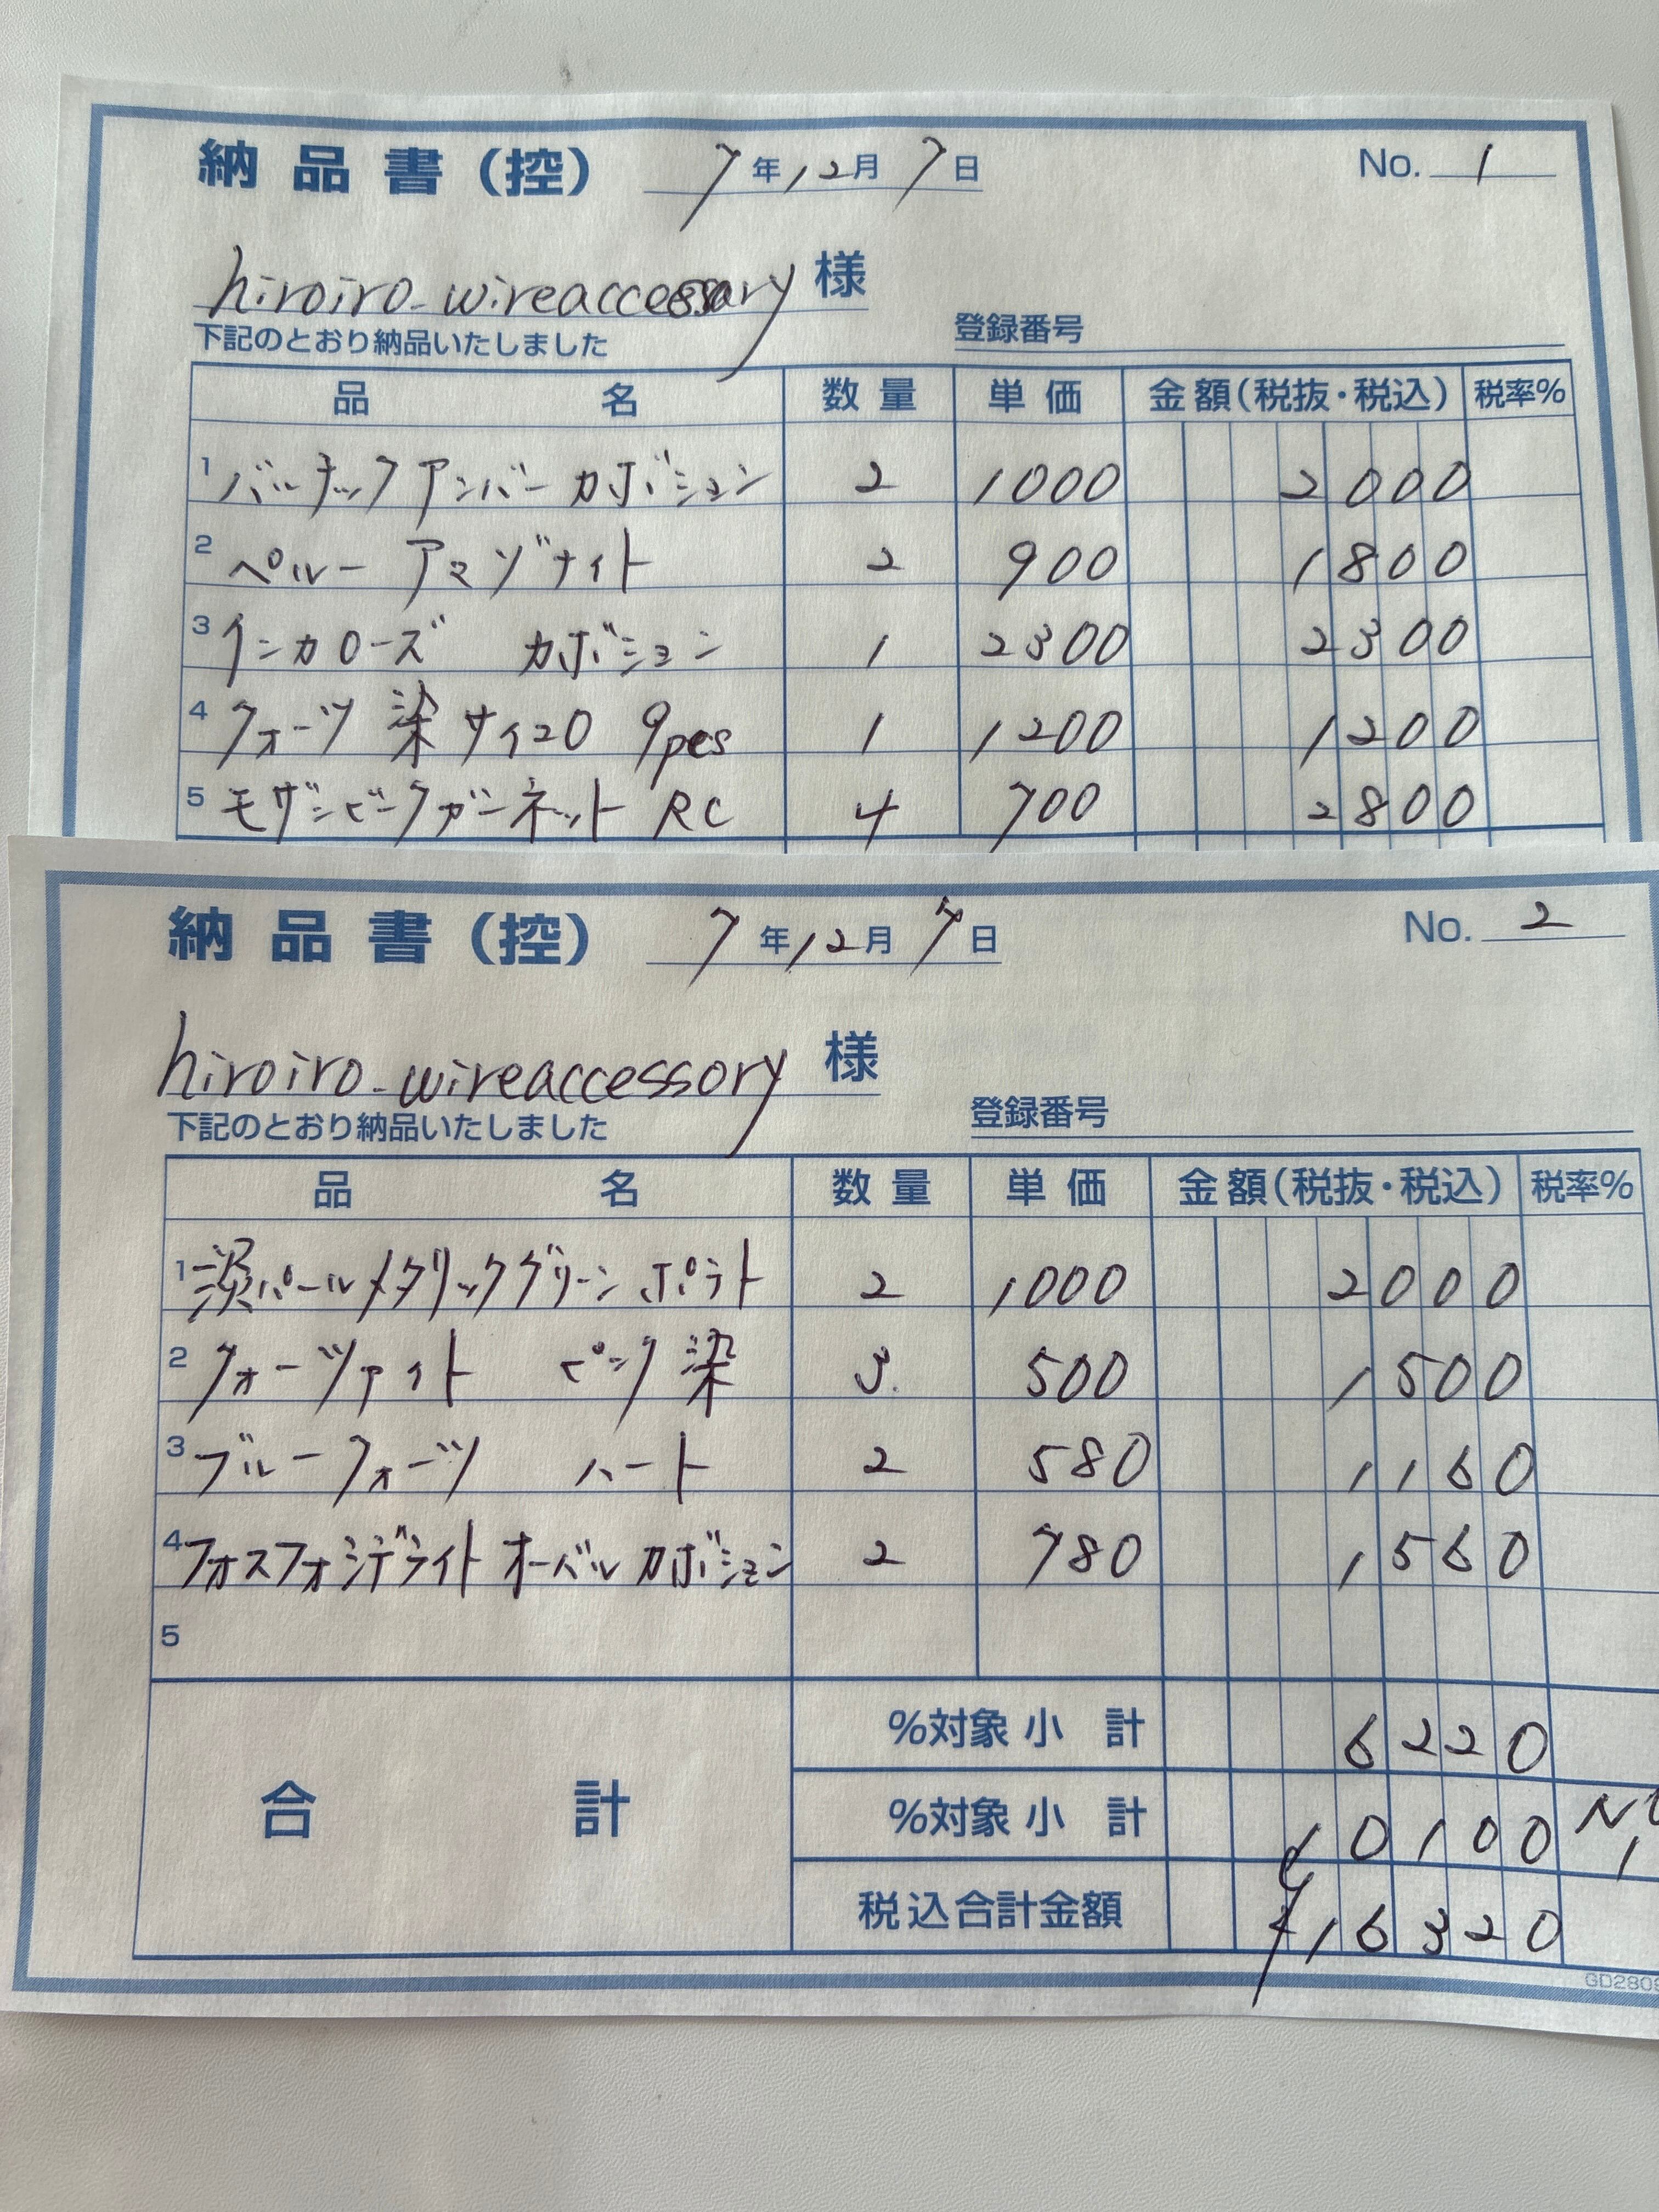 納品書(控) 7年12月7日 No. 1
hiroiro_wireaccessory 様
下記のとおり納品いたしました 登録番号
品名 数量 単価 金額(税抜・税込) 税率%
1 バルチックアンバー カボション 2 1000 2000
2 ペルー アマゾナイト 2 900 1800
3 インカローズ カボション 1 2300 2300
4 クォーツ 染 サイコロ 9pcs 1 1200 1200
5 モザンビークガーネット RC 4 700 2800
納品書(控) 7年12月7日 No. 2
hiroiro_wireaccessory 様
下記のとおり納品いたしました 登録番号
品名 数量 単価 金額(税抜・税込) 税率%
1 淡パールメタリックグリーン ポテト 2 1000 2000
2 クォーツァイト ピンク染 3 500 1500
3 ブルークォーツ ハート 2 580 1160
4 フォスフォシデライト オーバル カボション 2 780 1560
5
合計
%対象 小計 6220
%対象 小計 10100 No 1
税込合計金額 ¥16320